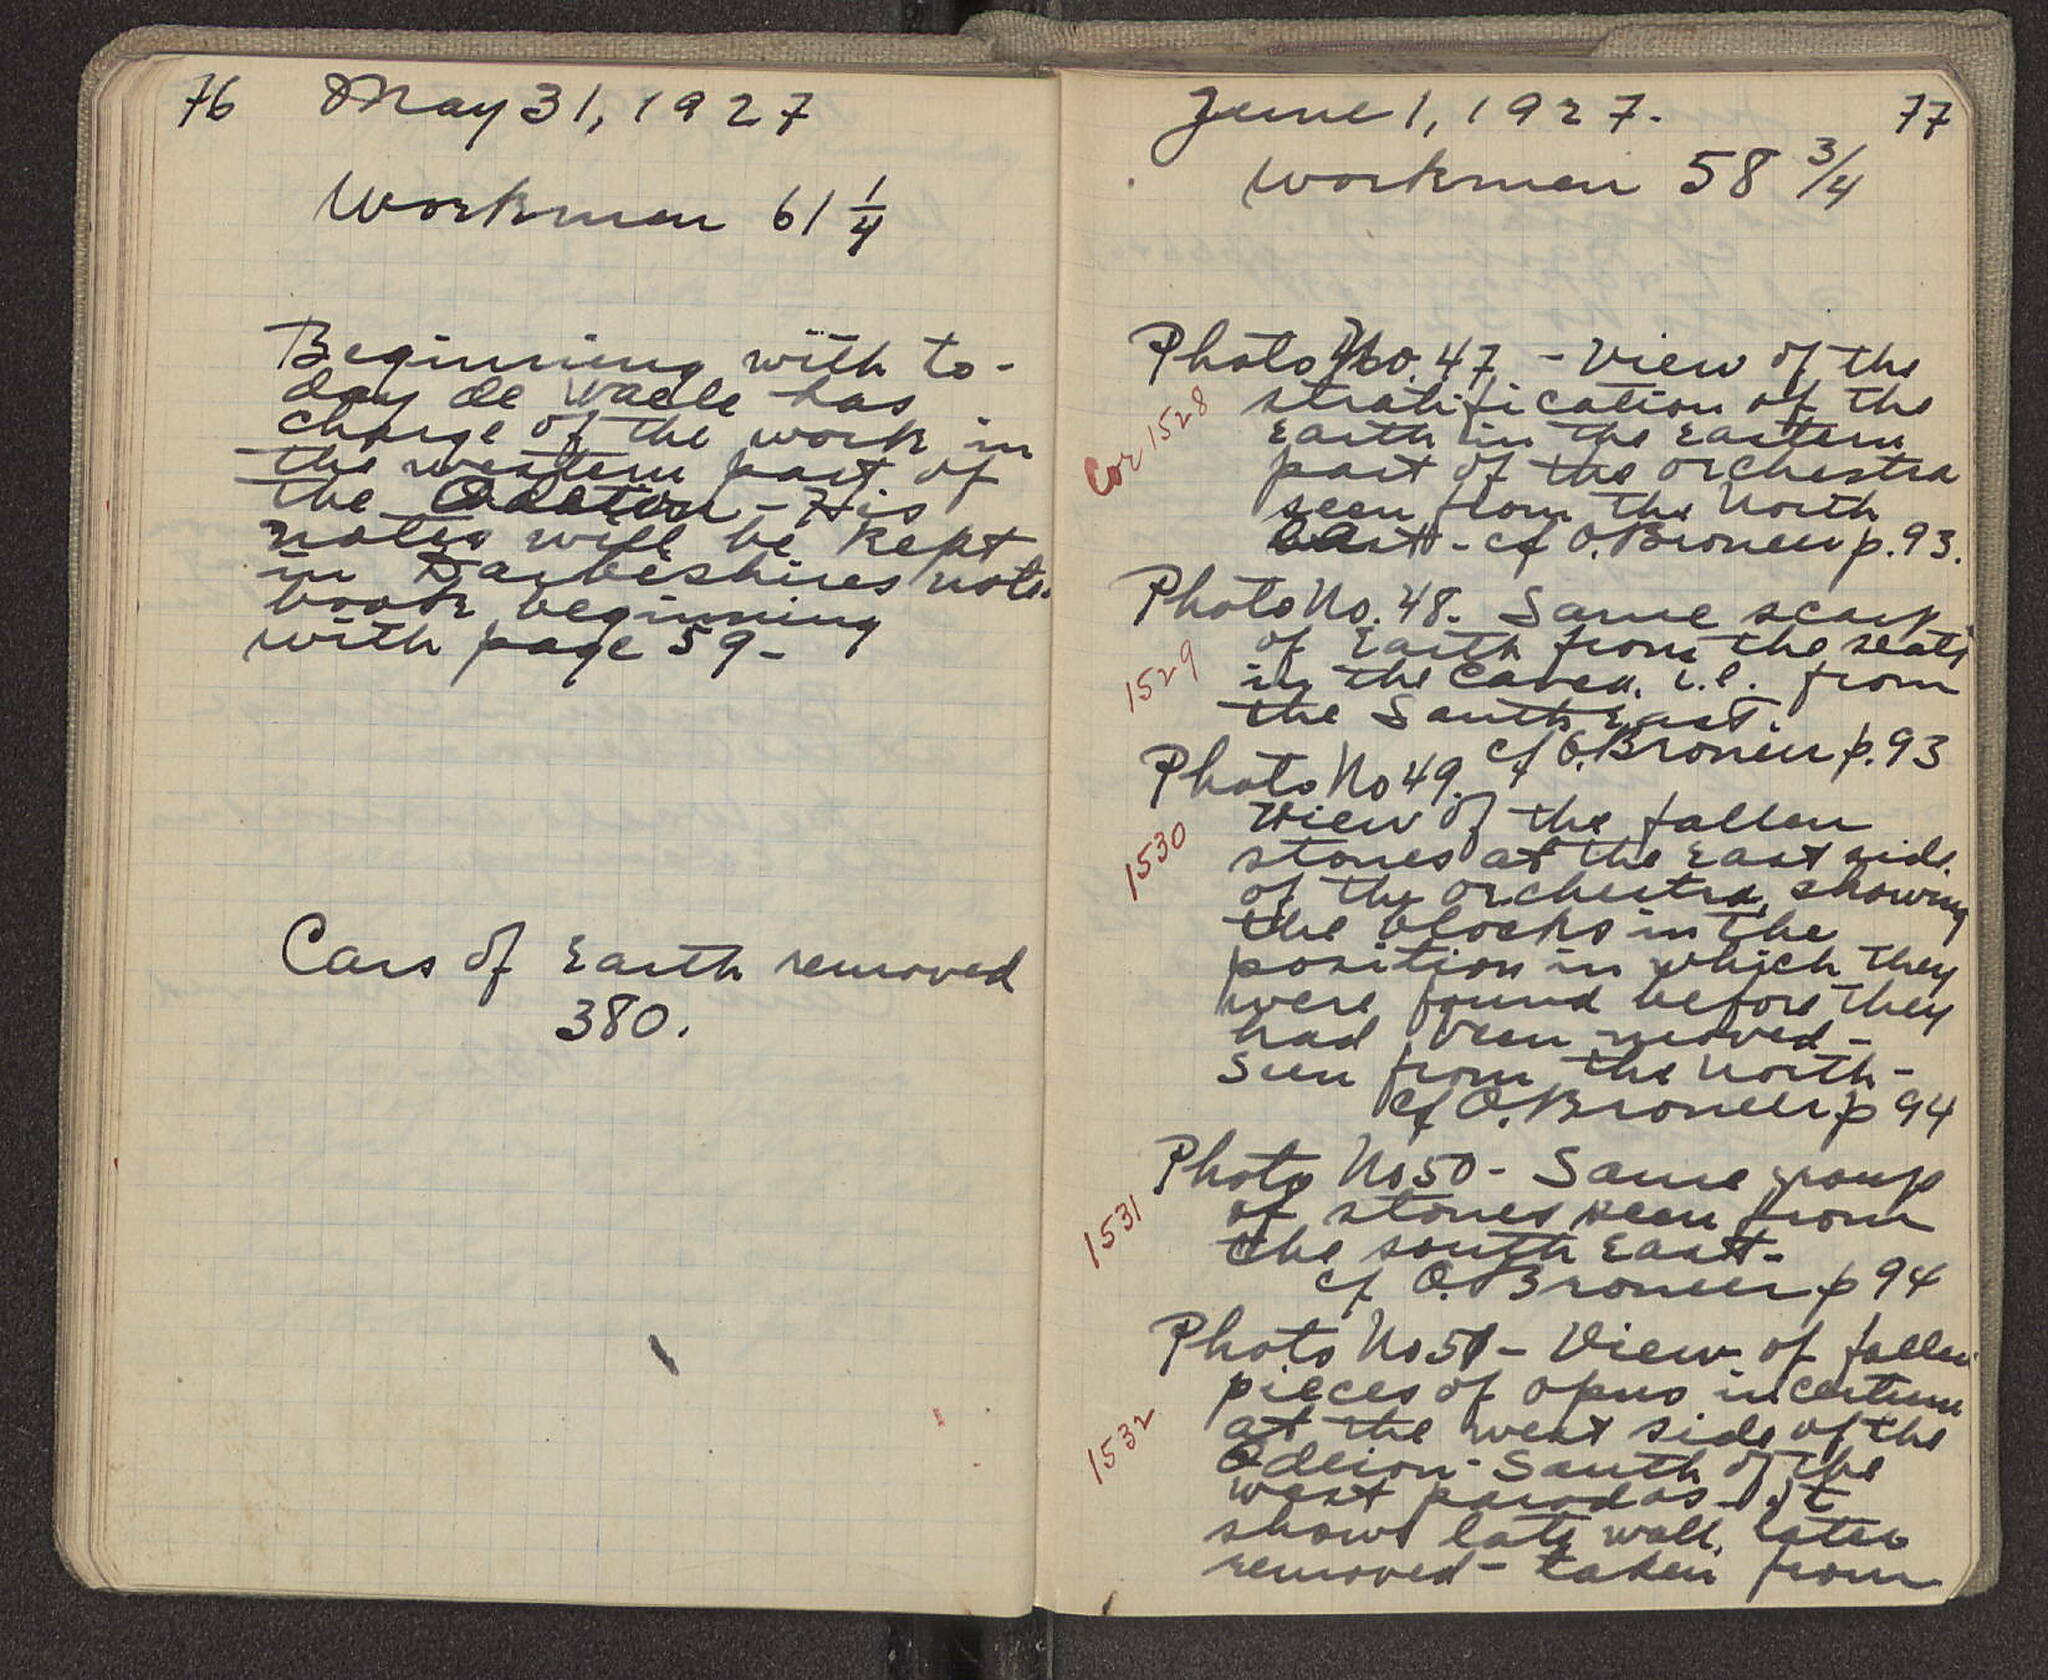 76 May 31, 1927
Workmen 61 1/4
Beginning with to-
day de Waele has
charge of the work in
the western part of
the Odeion - His
notes will be kept
in Darbishires note
book beginning
with page 59 -
Cars of Earth removed
380.
June 1, 1927. 77
workmen 58 3/4
Photo No. 47 - View of the
Cor 1528
stratification of the
Earth in the Eastern
part of the orchestra
seen from the North
East - cf O. Broneer p. 93.
Photo No. 48. Same scarp
1529
of Earth from the seats
in the Cavea. i.e. from
the South East.
cf O. Broneer p. 93
Photo No 49.
1530
View of the fallen
stones at the East side
of the orchestra, showing
the blocks in the
position in which they
were found before they
had been moved -
Seen from the North -
cf O. Broneer p 94
Photo No 50 - Same group
1531
of stones seen from
the south East -
cf O. Broneer p 94
Photo No 51 - View of fallen
pieces of opus incertum
1532
at the west side of the
Odeion - South of the
west parodos - It
shows late wall, later
removed - taken from